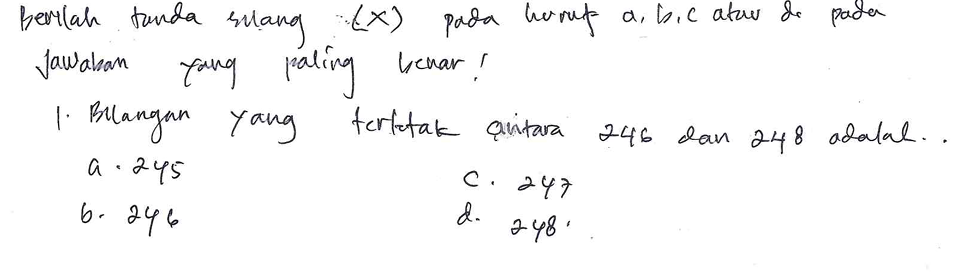 Berilah tanda silang (X) pada huruf a, b, c atau d. pada
Jawaban yang paling benar!
1. Bilangan yang terletak antara 246 dan 248 adalah..
a. 245
c. 247
b. 246
d. 248.